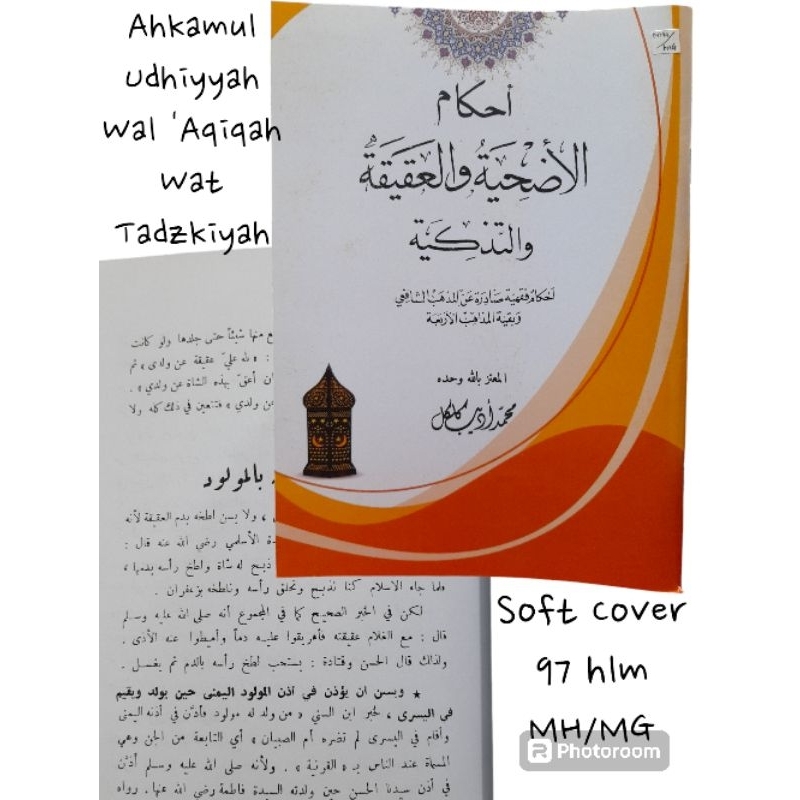 Ahkamul
udhiyyah
wal 'Aqiqah
wat
Tadzkiyah
أحكام
الأضحية والعقيقة
والتذكية
أحكام فقهية صادرة عن المذهب الشافعي
وبقية المذاهب الأربعة
المعتز بالله وحده
محمد أديب كلكل
منها شيئاً حتى جلدها ولو كانت
: « لله عليّ عقيقة عن ولدي » ثم
أعقّ بهذه الشاة عن ولدي » .
عن ولدي » فتتعين في ذلك كله ولا
بالمولود
، ولا يسن لطخه بدم العقيقة لأنه
الأسلمي رضي الله عنه قال :
ذبح له شاة ولطخ رأسه بدمها ،
فلما جاء الاسلام كنا نذبح ونحلق رأسه ونلطخه بزعفران .
لكن في الخبر الصحيح كما في المجموع أنه صلى الله عليه وسلم
قال : مع الغلام عقيقته فأهريقوا عليه دماً وأميطوا عنه الأذى .
ولذلك قال الحسن وقتادة : يستحب لطخ رأسه بالدم ثم يغسل .
★ ويسن ان يؤذن في أذن المولود اليمنى حين يولد ويقيم
في اليسرى ، لخبر ابن السني « من ولد له مولود فأذّن في أذنه اليمنى
وأقام في اليسرى لم تضره أم الصبيان » أي التابعة من الجن وهي
المسماة عند الناس بـ « القرنية » . ولأنه صلى الله عليه وسلم أذّن
في أذن سيدنا الحسن حين ولدته السيدة فاطمة رضي الله عنها . رواه
Soft cover
97 hlm
MH/MG
Photoroom